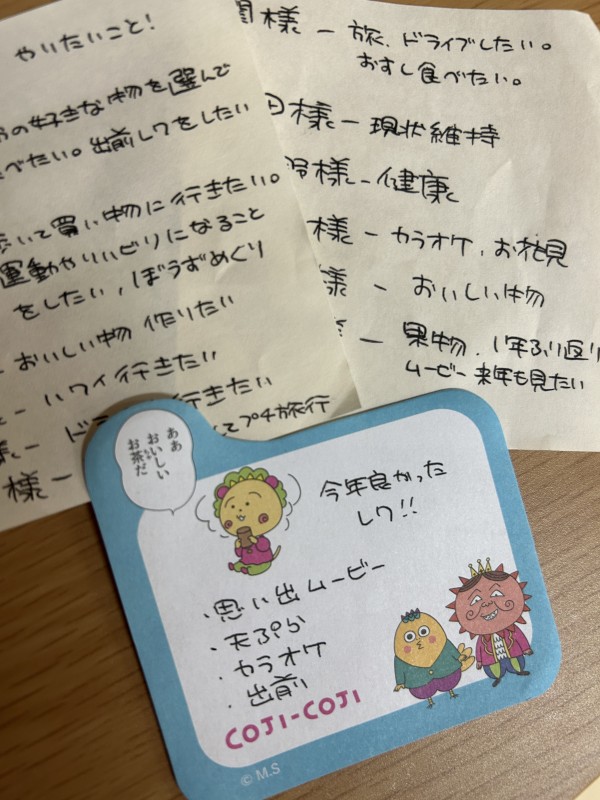 やりたいこと!
の好きな物を選んで
べたい。出前レクをしたい
歩いて買い物に行きたい。
運動やリハビリになること
をしたい,ぼうずめくり
おいしい物 作りたい
ハワイ行きたい
行きたい
てプチ旅行
様ー
様 ー 旅、ドライブしたい。
おすし食べたい。
様ー現状維持
様ー健康
様 ー カラオケ、お花見
様 ー おいしい物
ー 果物、1年ふり返り
ムービー 来年も見たい
ああ
おいしい
お茶だ
今年良かった
レク!!
・思い出ムービー
・天ぷら
・カラオケ
・出前
COJI-COJI
© M.S